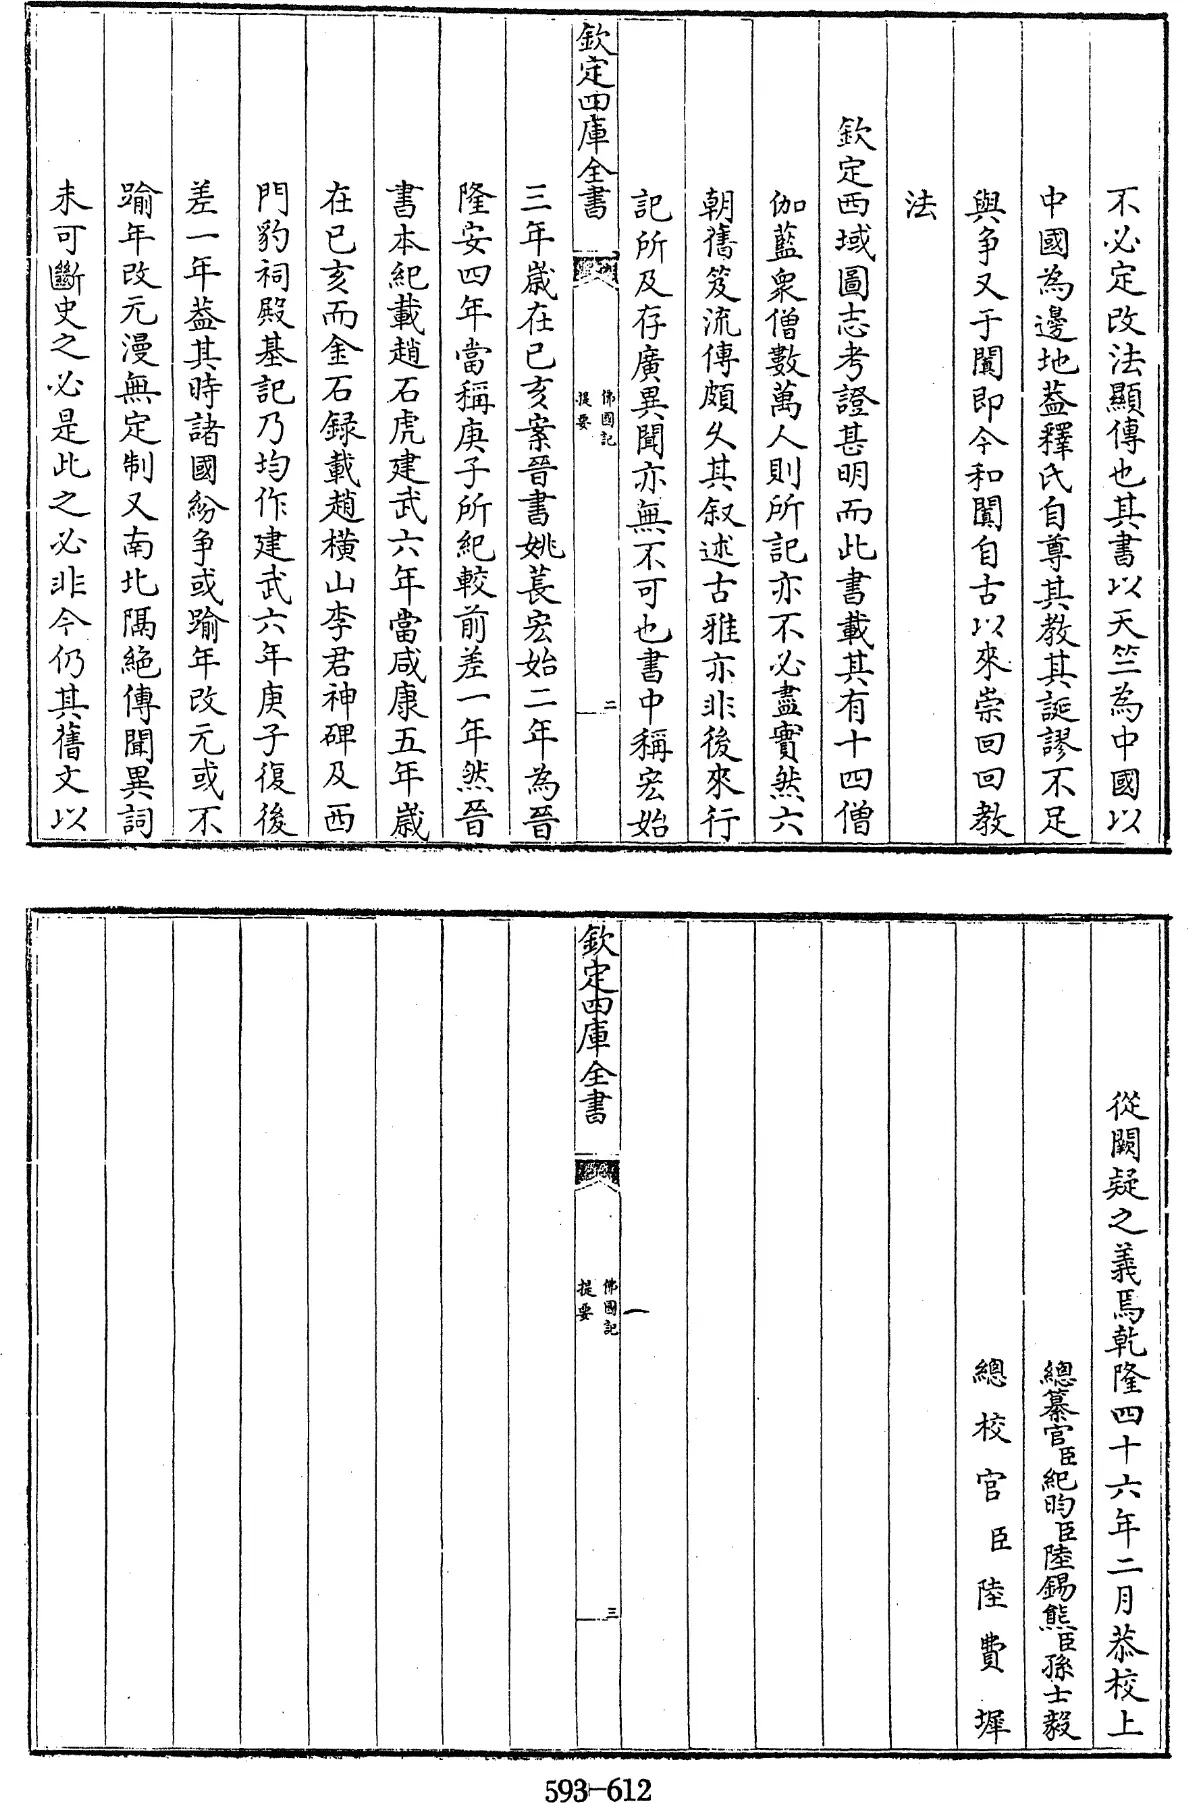 不必定改法顯傳也其書以天竺為中國以
中國為邊地葢釋氏自尊其教其誕謬不足
與爭又于闐即今和闐自古以來崇回回教
法
欽定西域圖志考證甚明而此書載其有十四僧
伽藍衆僧數萬人則所記亦不必盡實然六
朝舊笈流傳頗久其叙述古雅亦非後來行
記所及存廣異聞亦無不可也書中稱宏始
欽定四庫全書
佛國記
提要
二
三年歲在已亥案晉書姚萇宏始二年為晉
隆安四年當稱庚子所紀較前差一年然晉
書本紀載趙石虎建武六年當咸康五年歲
在已亥而金石録載趙橫山李君神碑及西
門豹祠殿基記乃均作建武六年庚子復後
差一年葢其時諸國紛爭或踰年改元或不
踰年改元漫無定制又南北隔絶傳聞異詞
未可斷史之必是此之必非今仍其舊文以
從闕疑之義焉乾隆四十六年二月恭校上
總纂官臣紀昀臣陸錫熊臣孫士毅
總校官臣陸費墀
欽定四庫全書
佛國記
提要
一
三
593-612